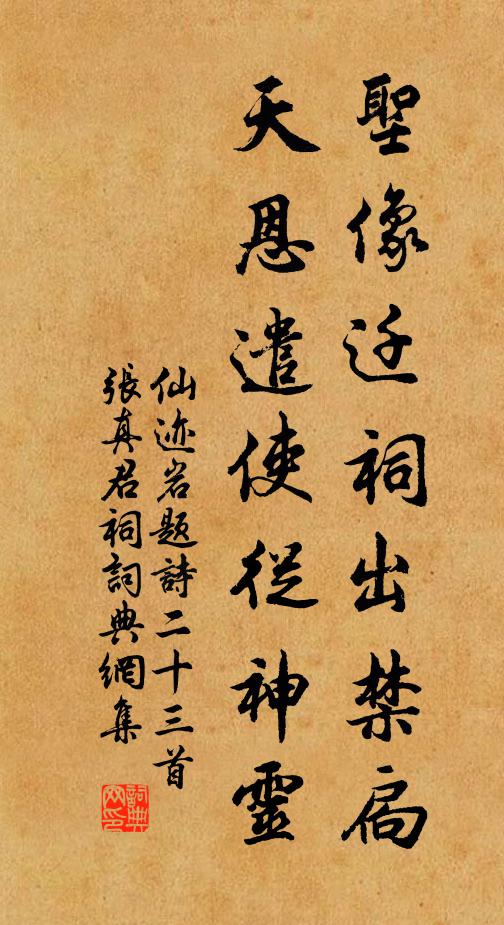 聖像迁祠出禁扃
天恩遣使從神靈
仙迹岩题詩二十三首
張真君祠詞典網集
詞典网印